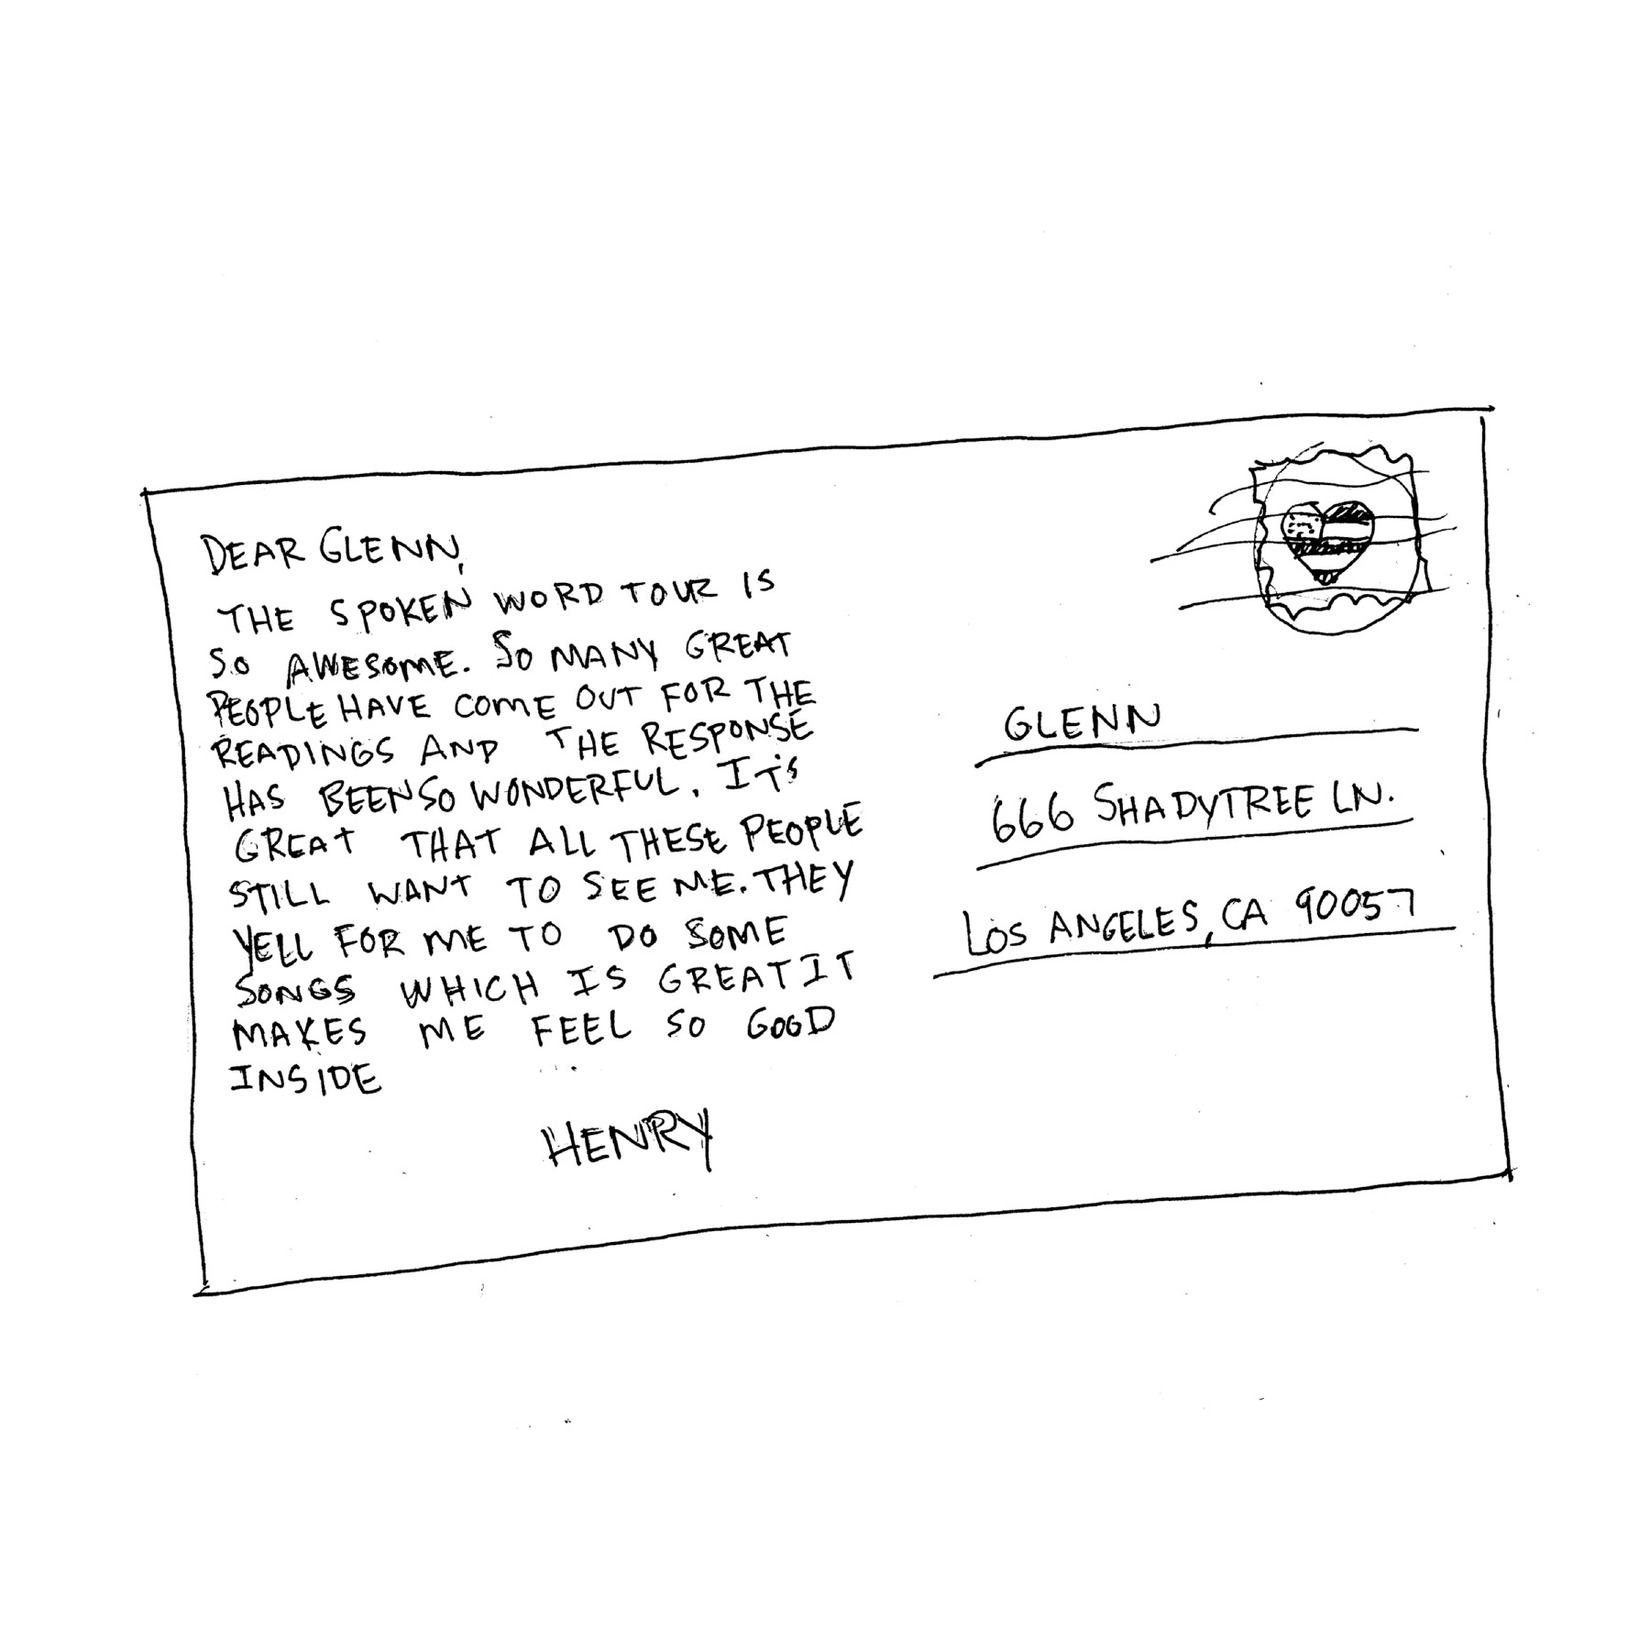 DEAR GLENN,
THE SPOKEN WORD TOUR IS
SO AWESOME. SO MANY GREAT
PEOPLE HAVE COME OUT FOR THE
READINGS AND THE RESPONSE
HAS BEEN SO WONDERFUL. IT'S
GREAT THAT ALL THESE PEOPLE
STILL WANT TO SEE ME. THEY
YELL FOR ME TO DO SOME
SONGS WHICH IS GREAT IT
MAKES ME FEEL SO GOOD
INSIDE
HENRY
GLENN
666 SHADYTREE LN.
LOS ANGELES, CA 90057